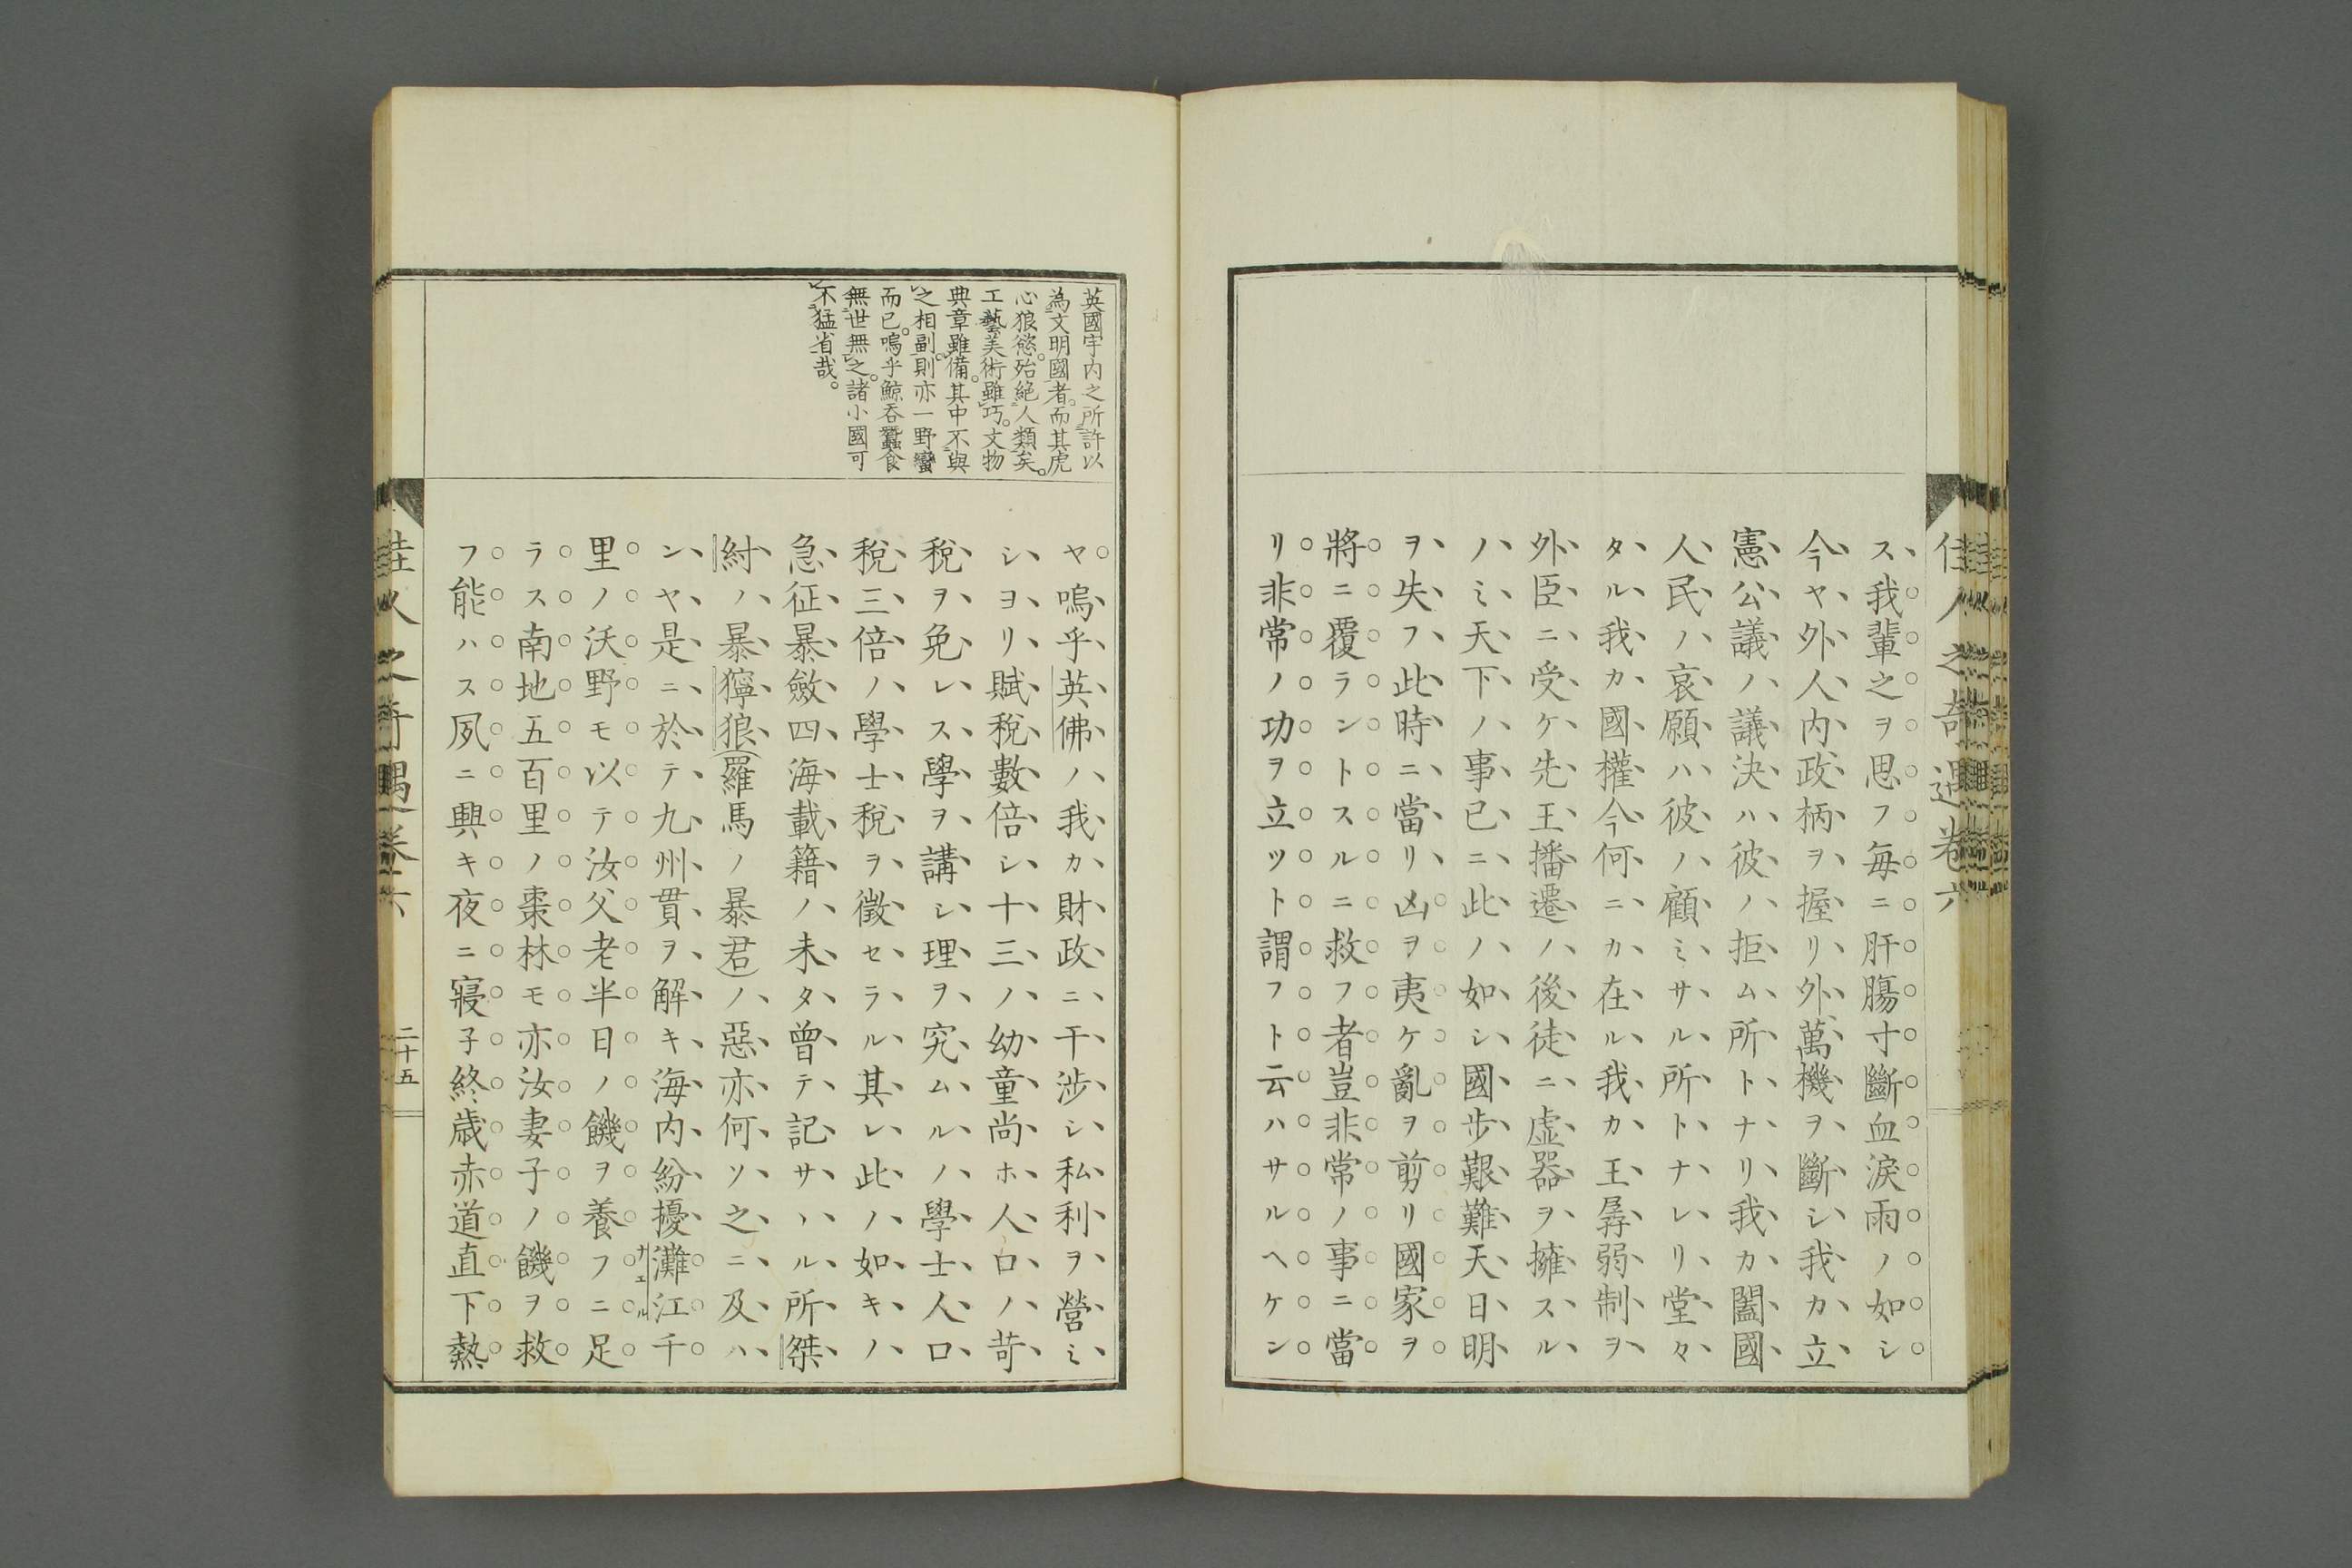 佳人之奇遇卷六
ス我輩之ヲ思フ毎ニ肝膓寸斷血淚雨ノ如シ
今ヤ外人內政柄ヲ握リ外萬機ヲ斷シ我カ立
憲公議ノ議決ハ彼ノ拒ム所トナリ我カ闔國
人民ノ哀願ハ彼ノ顧ミサル所トナレリ堂々
タル我カ國權今何ニカ在ル我カ王孱弱制ヲ
外臣ニ受ケ先王播遷ノ後徒ニ虛器ヲ擁スル
ノミ天下ノ事已ニ此ノ如シ國步艱難天日明
ヲ失フ此時ニ當リ凶ヲ夷ケ亂ヲ剪リ國家ヲ
將ニ覆ラントスルニ救フ者豈非常ノ事ニ當
リ非常ノ功ヲ立ツト謂フト云ハサルヘケン
英國宇內之所許以
為文明國者而其虎
心狼慾。殆絕人類矣。
工藝美術雖巧。文物
典章雖備。其中不與
之相副。則亦一野蠻
而已。嗚乎鯨吞蠶食
無世無之。諸小國可
不猛省哉。
ヤ嗚乎英佛ハ我カ財政ニ干涉シ私利ヲ營ミ
シヨリ賦稅數倍シ十三ノ幼童尚ホ人口ノ苛
稅ヲ免レス學ヲ講シ理ヲ究ムルノ學士人口
稅三倍ノ學士稅ヲ徵セラル其レ此ノ如キノ
急征暴斂四海載籍ノ未タ曾テ記サヽル所桀
紂ノ暴獰狼(羅馬ノ暴君)ノ惡亦何ソ之ニ及ハ
ンヤ是ニ於テ九州貫ヲ解キ海內紛擾灘江千
ナエル
里ノ沃野モ以テ汝父老半日ノ饑ヲ養フニ足
ラス南地五百里ノ棗林モ亦汝妻子ノ饑ヲ救
フ能ハス夙ニ興キ夜ニ寢子終歲赤道直下熱
佳人之奇遇卷六
二十五